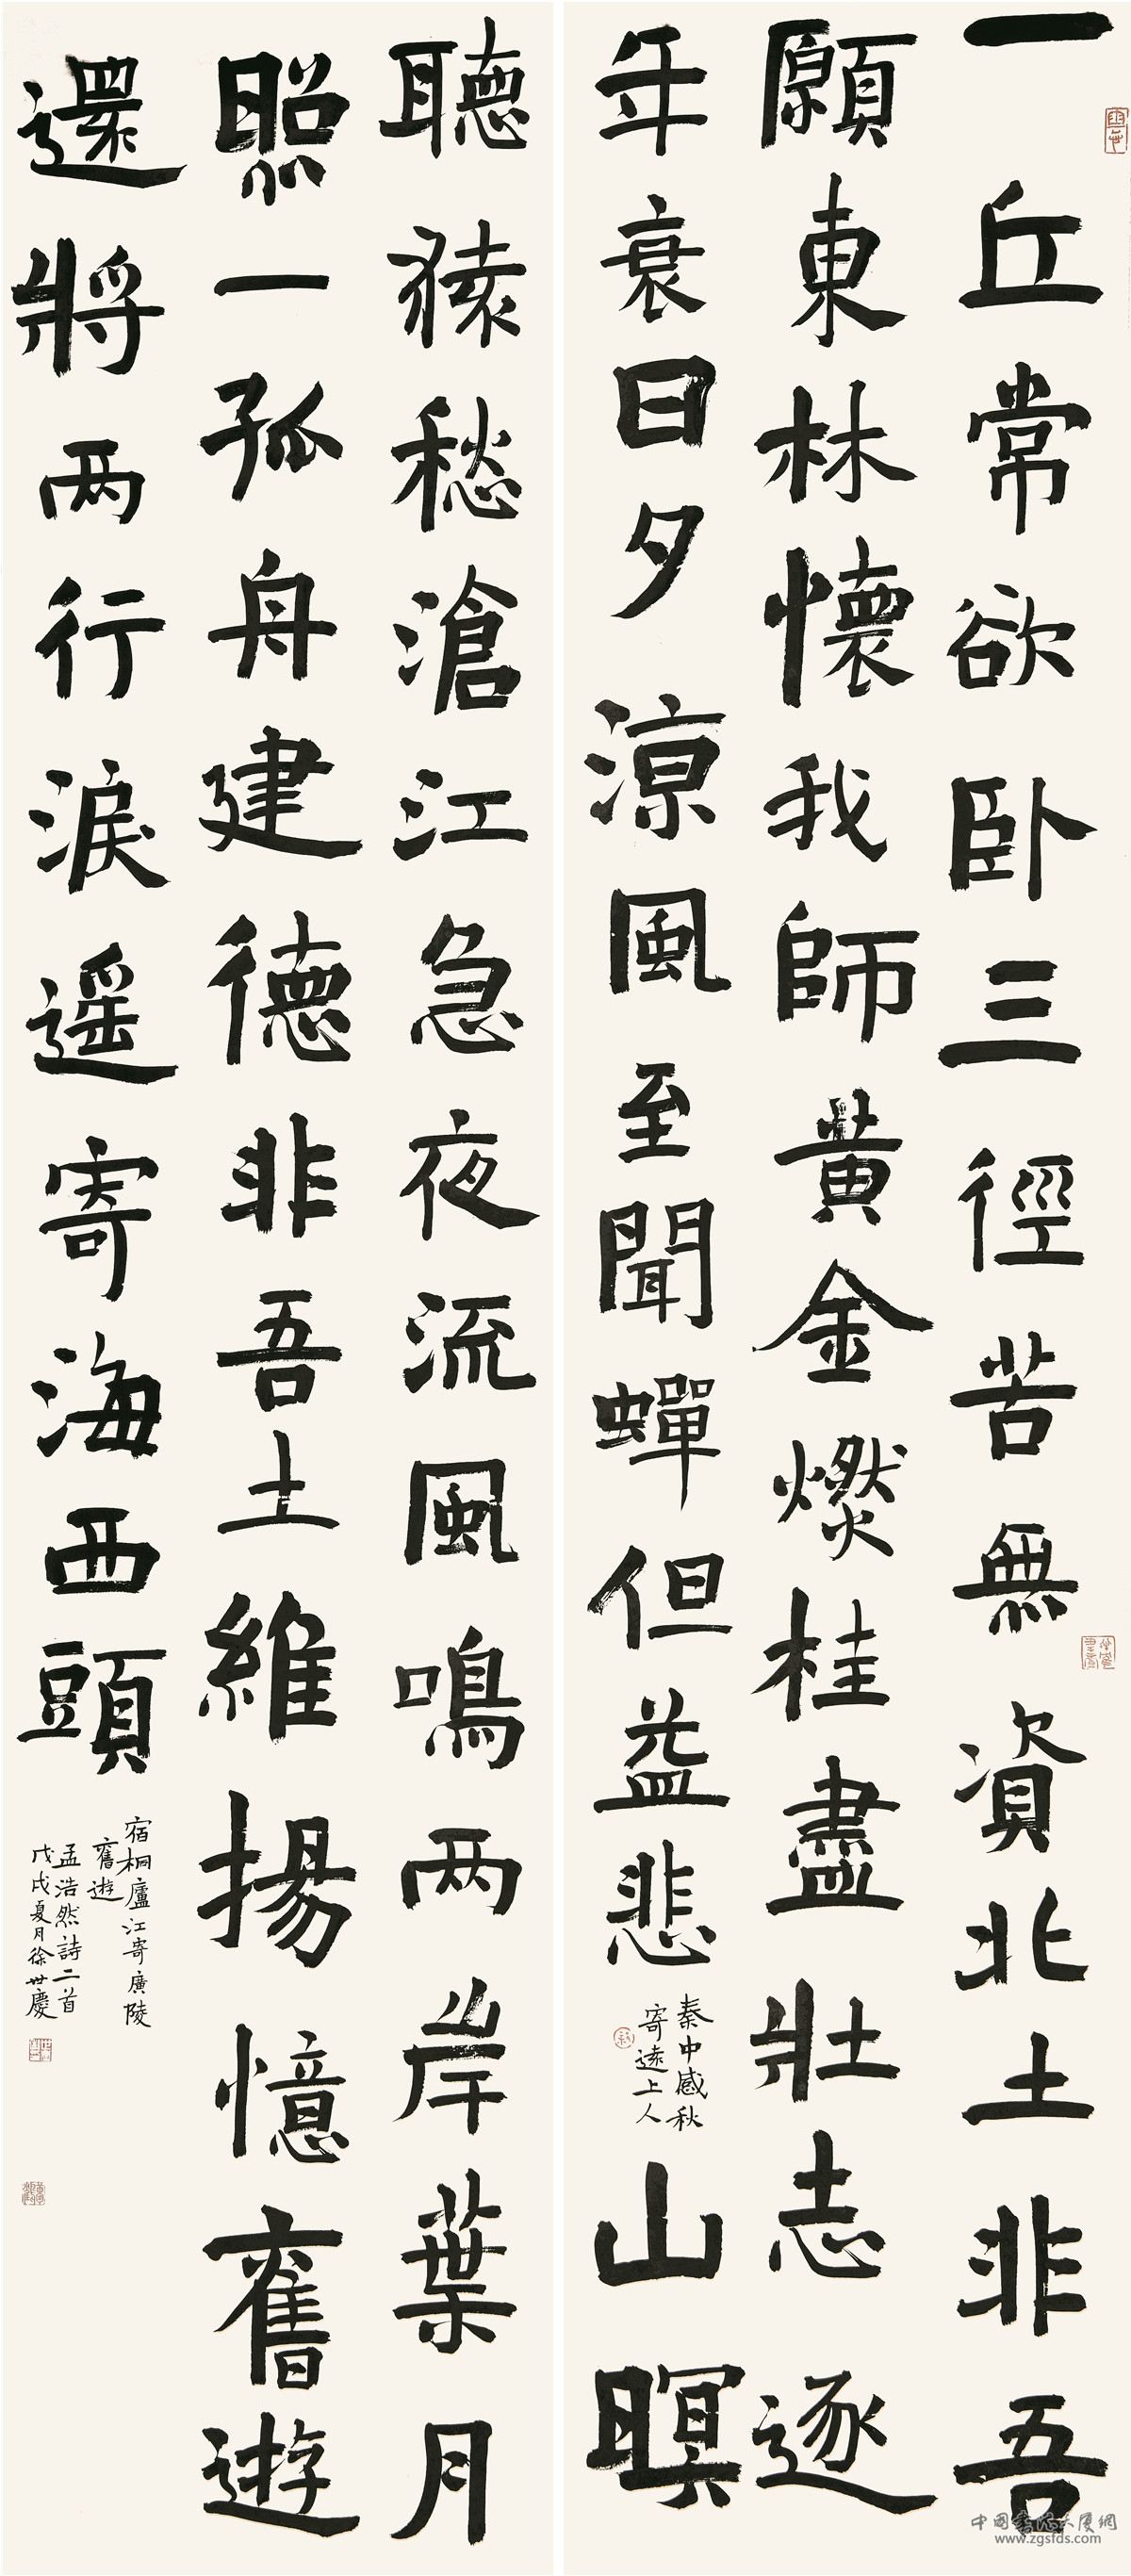 一丘常欲卧三徑苦無資北土非吾
願東林懷我師黃金燃桂盡壯志逐
年衰日夕涼風至聞蟬但益悲
秦中感秋
寄遠上人
山暝
聽猿愁滄江急夜流風鳴兩岸葉月
照一孤舟建德非吾土維揚憶舊遊
還將兩行淚遙寄海西頭
宿桐廬江寄廣陵
舊遊
孟浩然詩二首
戊戌夏月徐世慶
中國書法大廈網
www.zgsfds.com